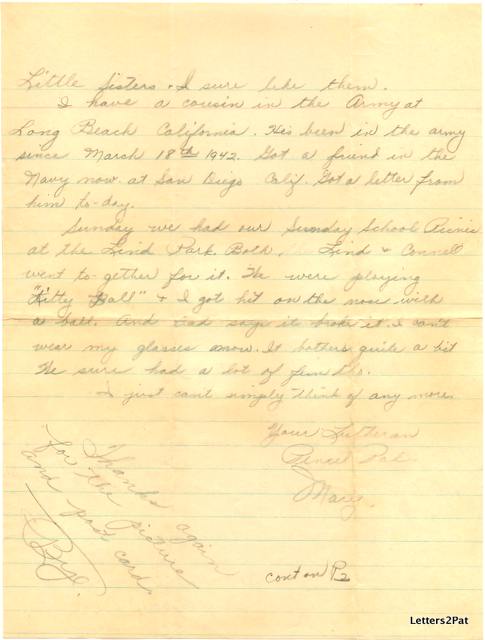 Little Sisters. I sure like them.
I have a cousin in the Army at
Long Beach California. His been in the army
since March 18th 1942. Got a friend in the
Navy now at San Diego Calif. Got a letter from
him to-day.
Sunday we had our Sunday School Picnic
at the Lind Park. Both, Lind & Connell
went to-gether for it. We were playing
"Kitty Ball" & I got hit on the nose with
a ball. And Dad says its broke it. I can't
wear my glasses anow. It bothers quite a bit
We sure had a lot of fun tho.
I just can't simply think of any more.
Your Lutheran
Pencil Pal
Mary
Thanks again
for the picture
and post card
Bye.
cont on P2
Letters2Pat